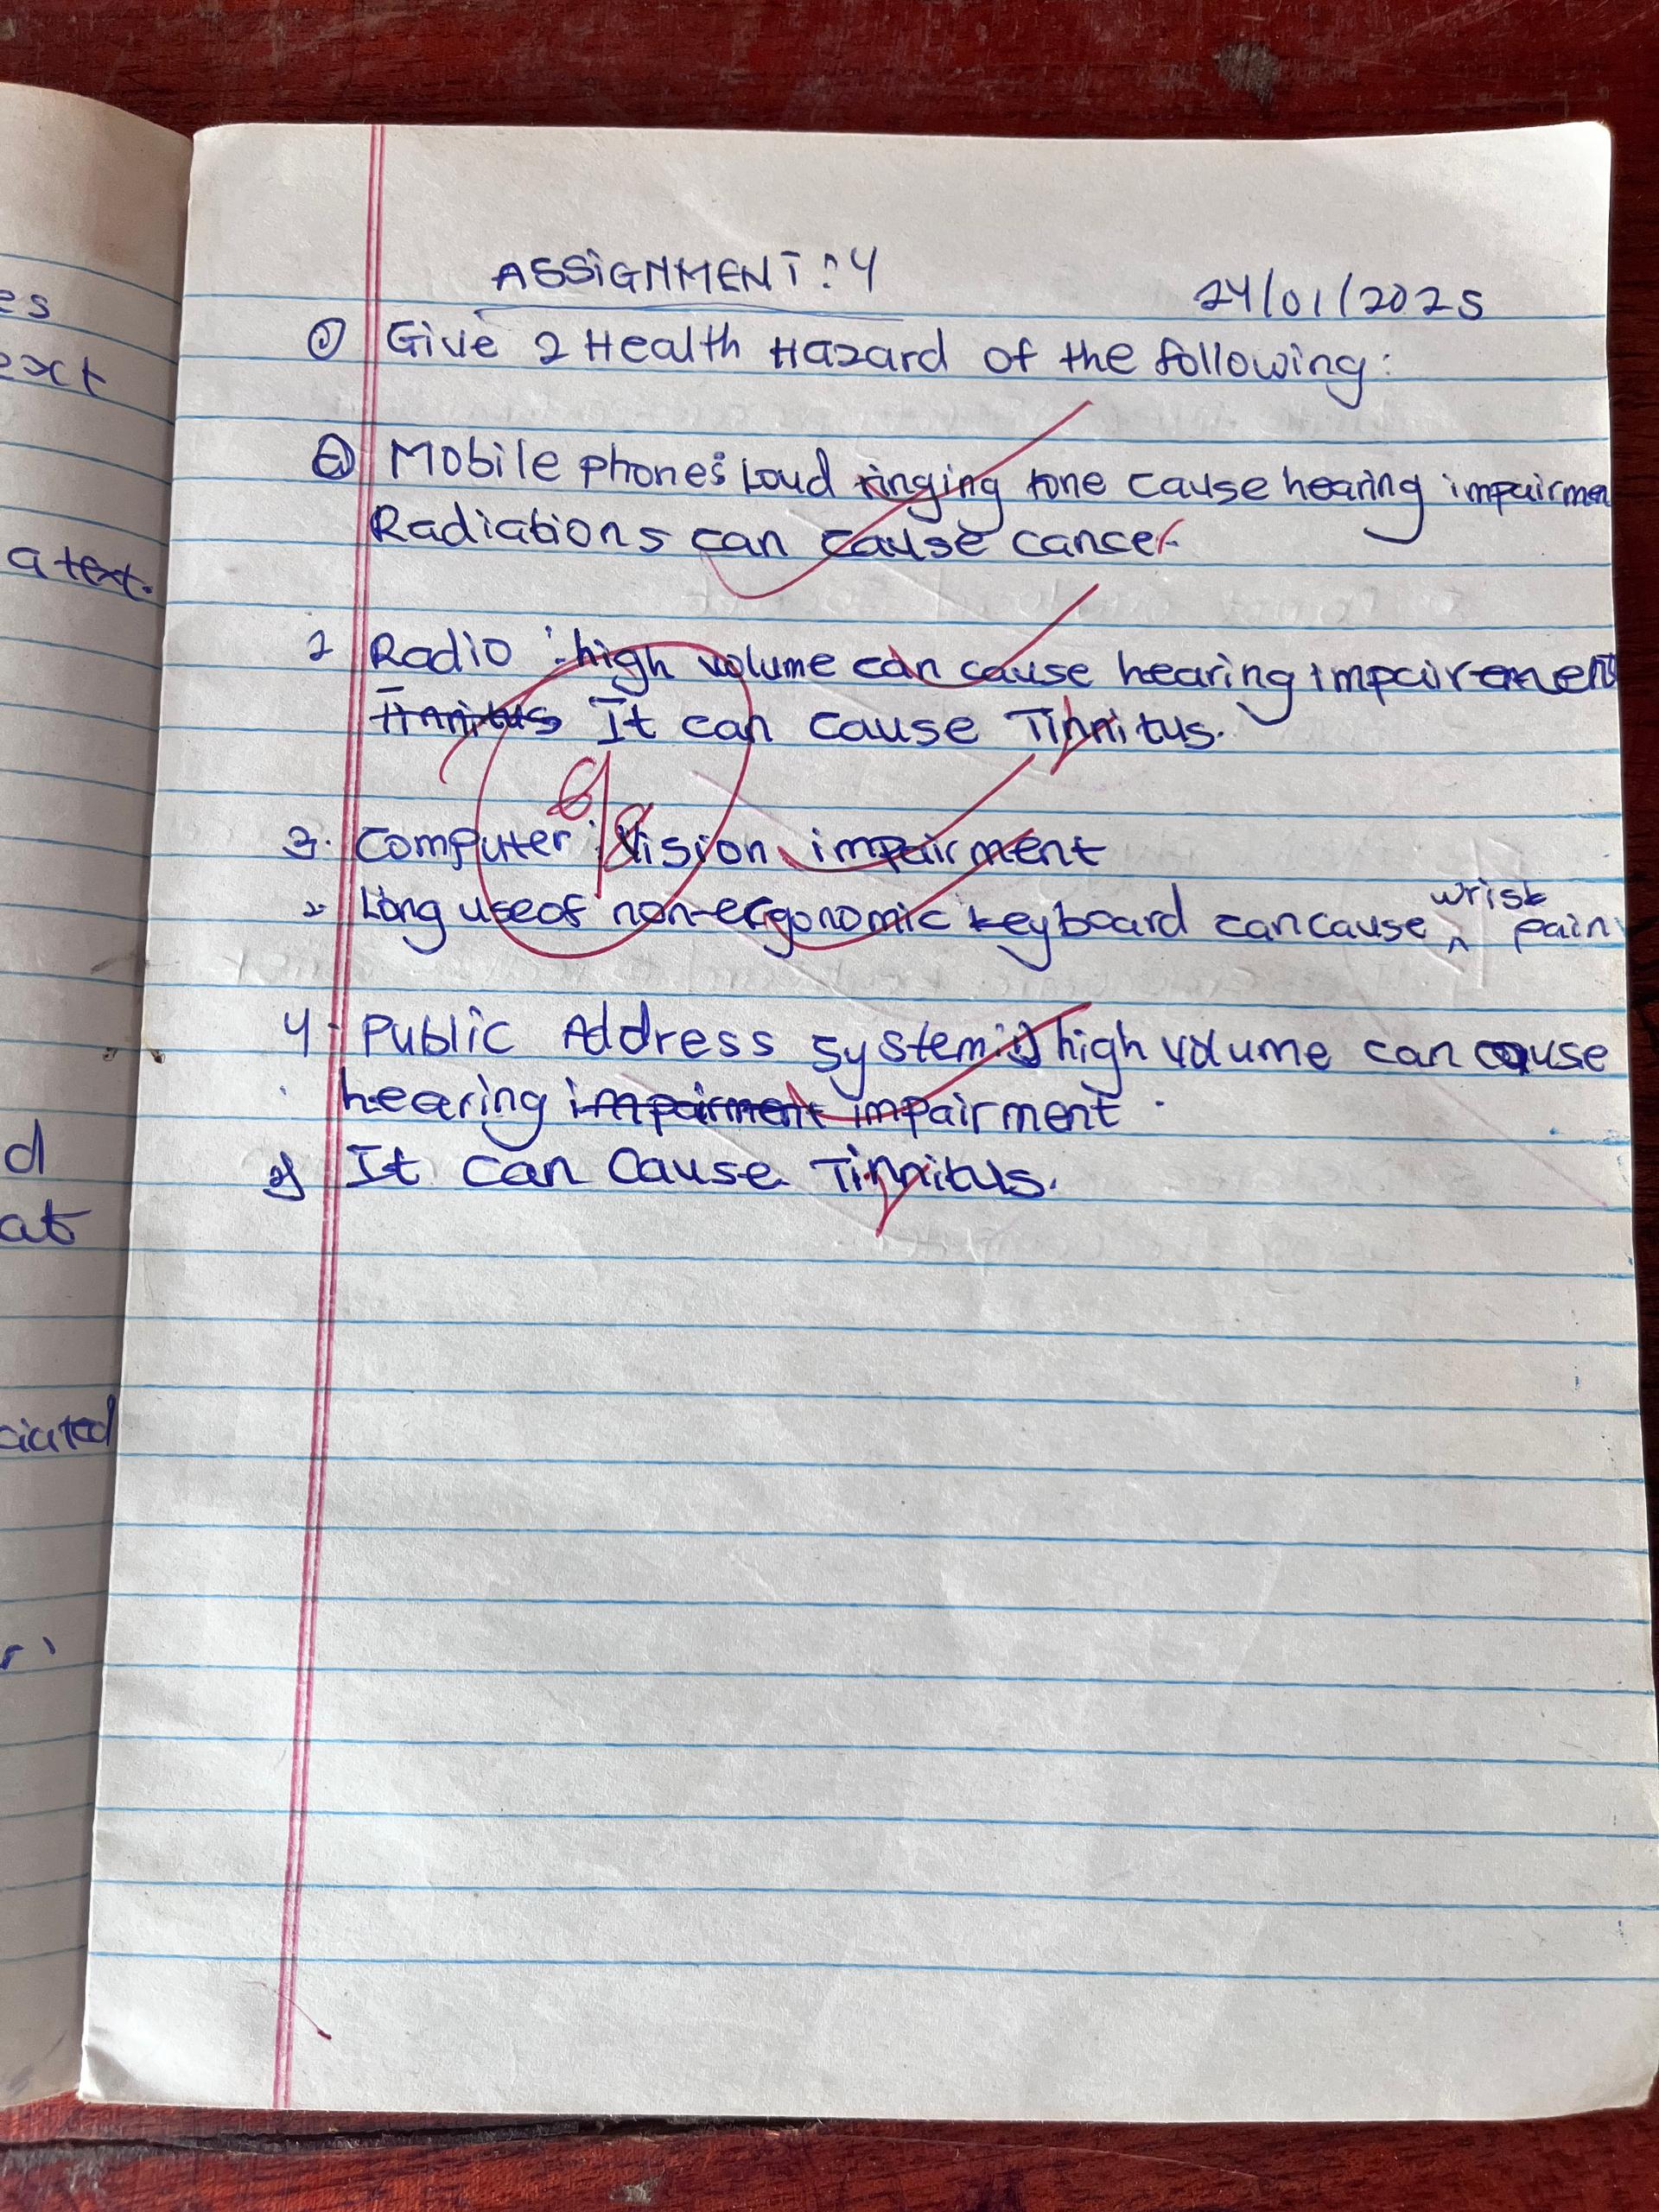 ASSIGNMENT: 4
24/01/2025
① Give 2 Health Hazard of the following:
Mobile phones: Loud ringing tone cause hearing impairmen
Radiations can cause cancer.
2 Radio : high volume can cause hearing impairement
Tinnitus It can cause Tinnitus.
6/8
3. Computer : Vision impairment
2 Long use of non-ergonomic keyboard can cause wrisk pain
4. Public Address system: 1) high volume can cause
hearing impairment impairment.
2) It can cause Tinnitus.
es
ext
a text.
d
at
ciated
r